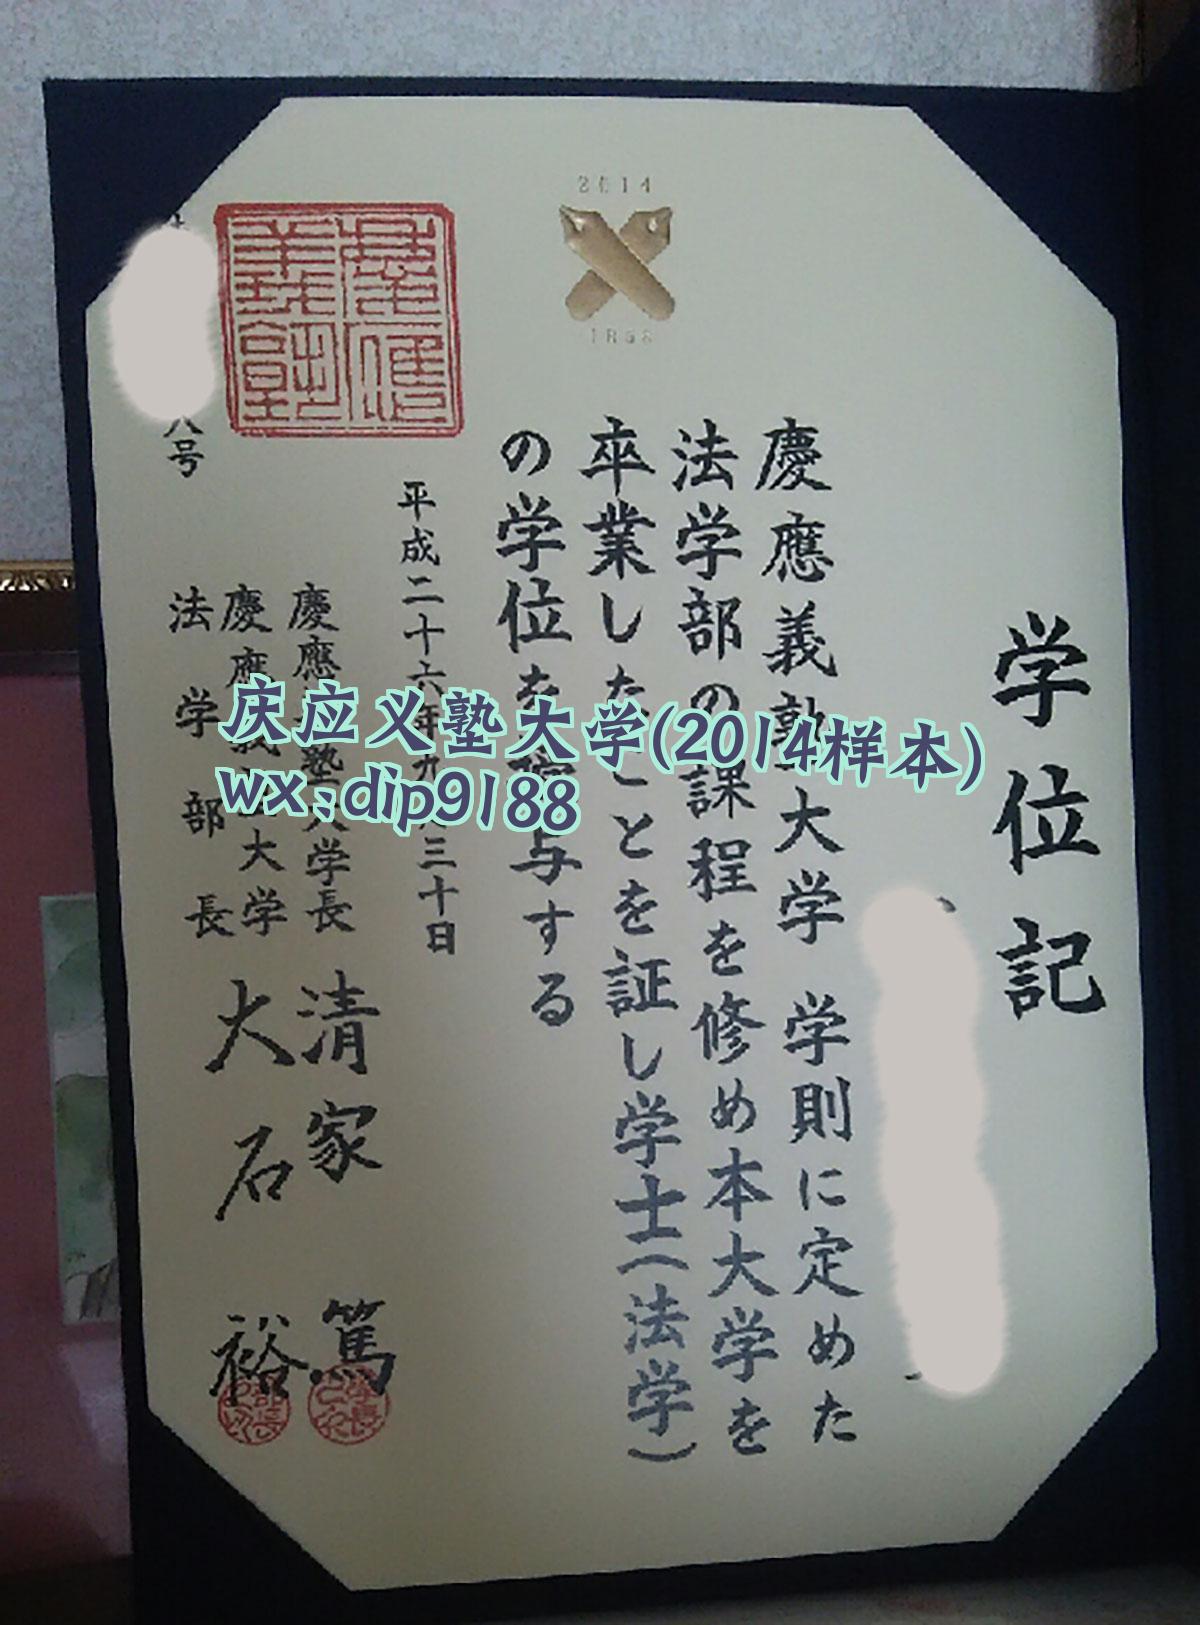 2014
1858
学位記
慶應義塾大学 学則に定めた
法学部の課程を修め本大学を
卒業したことを証し学士(法学)
の学位を授与する
平成二十六年九月三十日
慶應義塾大学長 清家 篤
慶應義塾大学
法学部長 大石 裕
八号
慶應義塾
庆应义塾大学(2014样本)
wx:dip9188